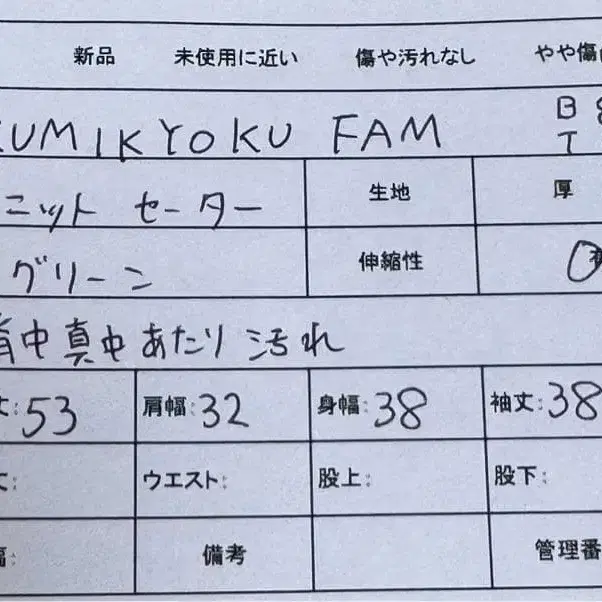 新品 未使用に近い 傷や汚れなし やや傷
KUMIKYOKU FAM B
T
ニット セーター 生地 厚
グリーン 伸縮性 有
背中真中あたり汚れ
丈:53 肩幅:32 身幅:38 袖丈:38
丈: ウエスト: 股上: 股下:
幅: 備考 管理番